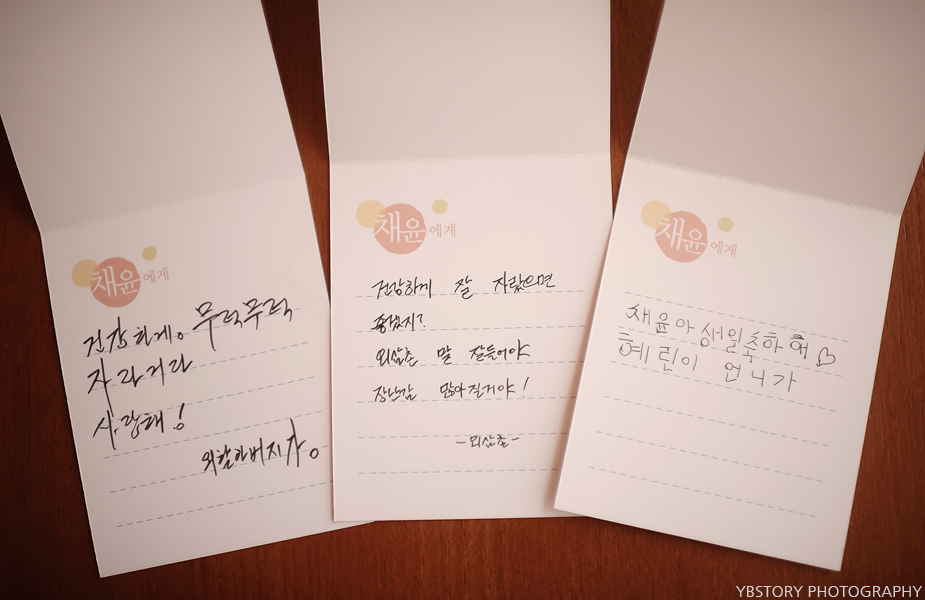 채윤에게
건강하게. 무럭무럭
자라거라
사랑해!
외할아버지가.
채윤에게
건강하게 잘 자랐으면
좋겠지?
외삼촌 말 잘들어야
장난감 많아질거야!
-외삼촌-
채윤에게
채윤아 생일축하해♡
혜린이 언니가
YBSTORY PHOTOGRAPHY